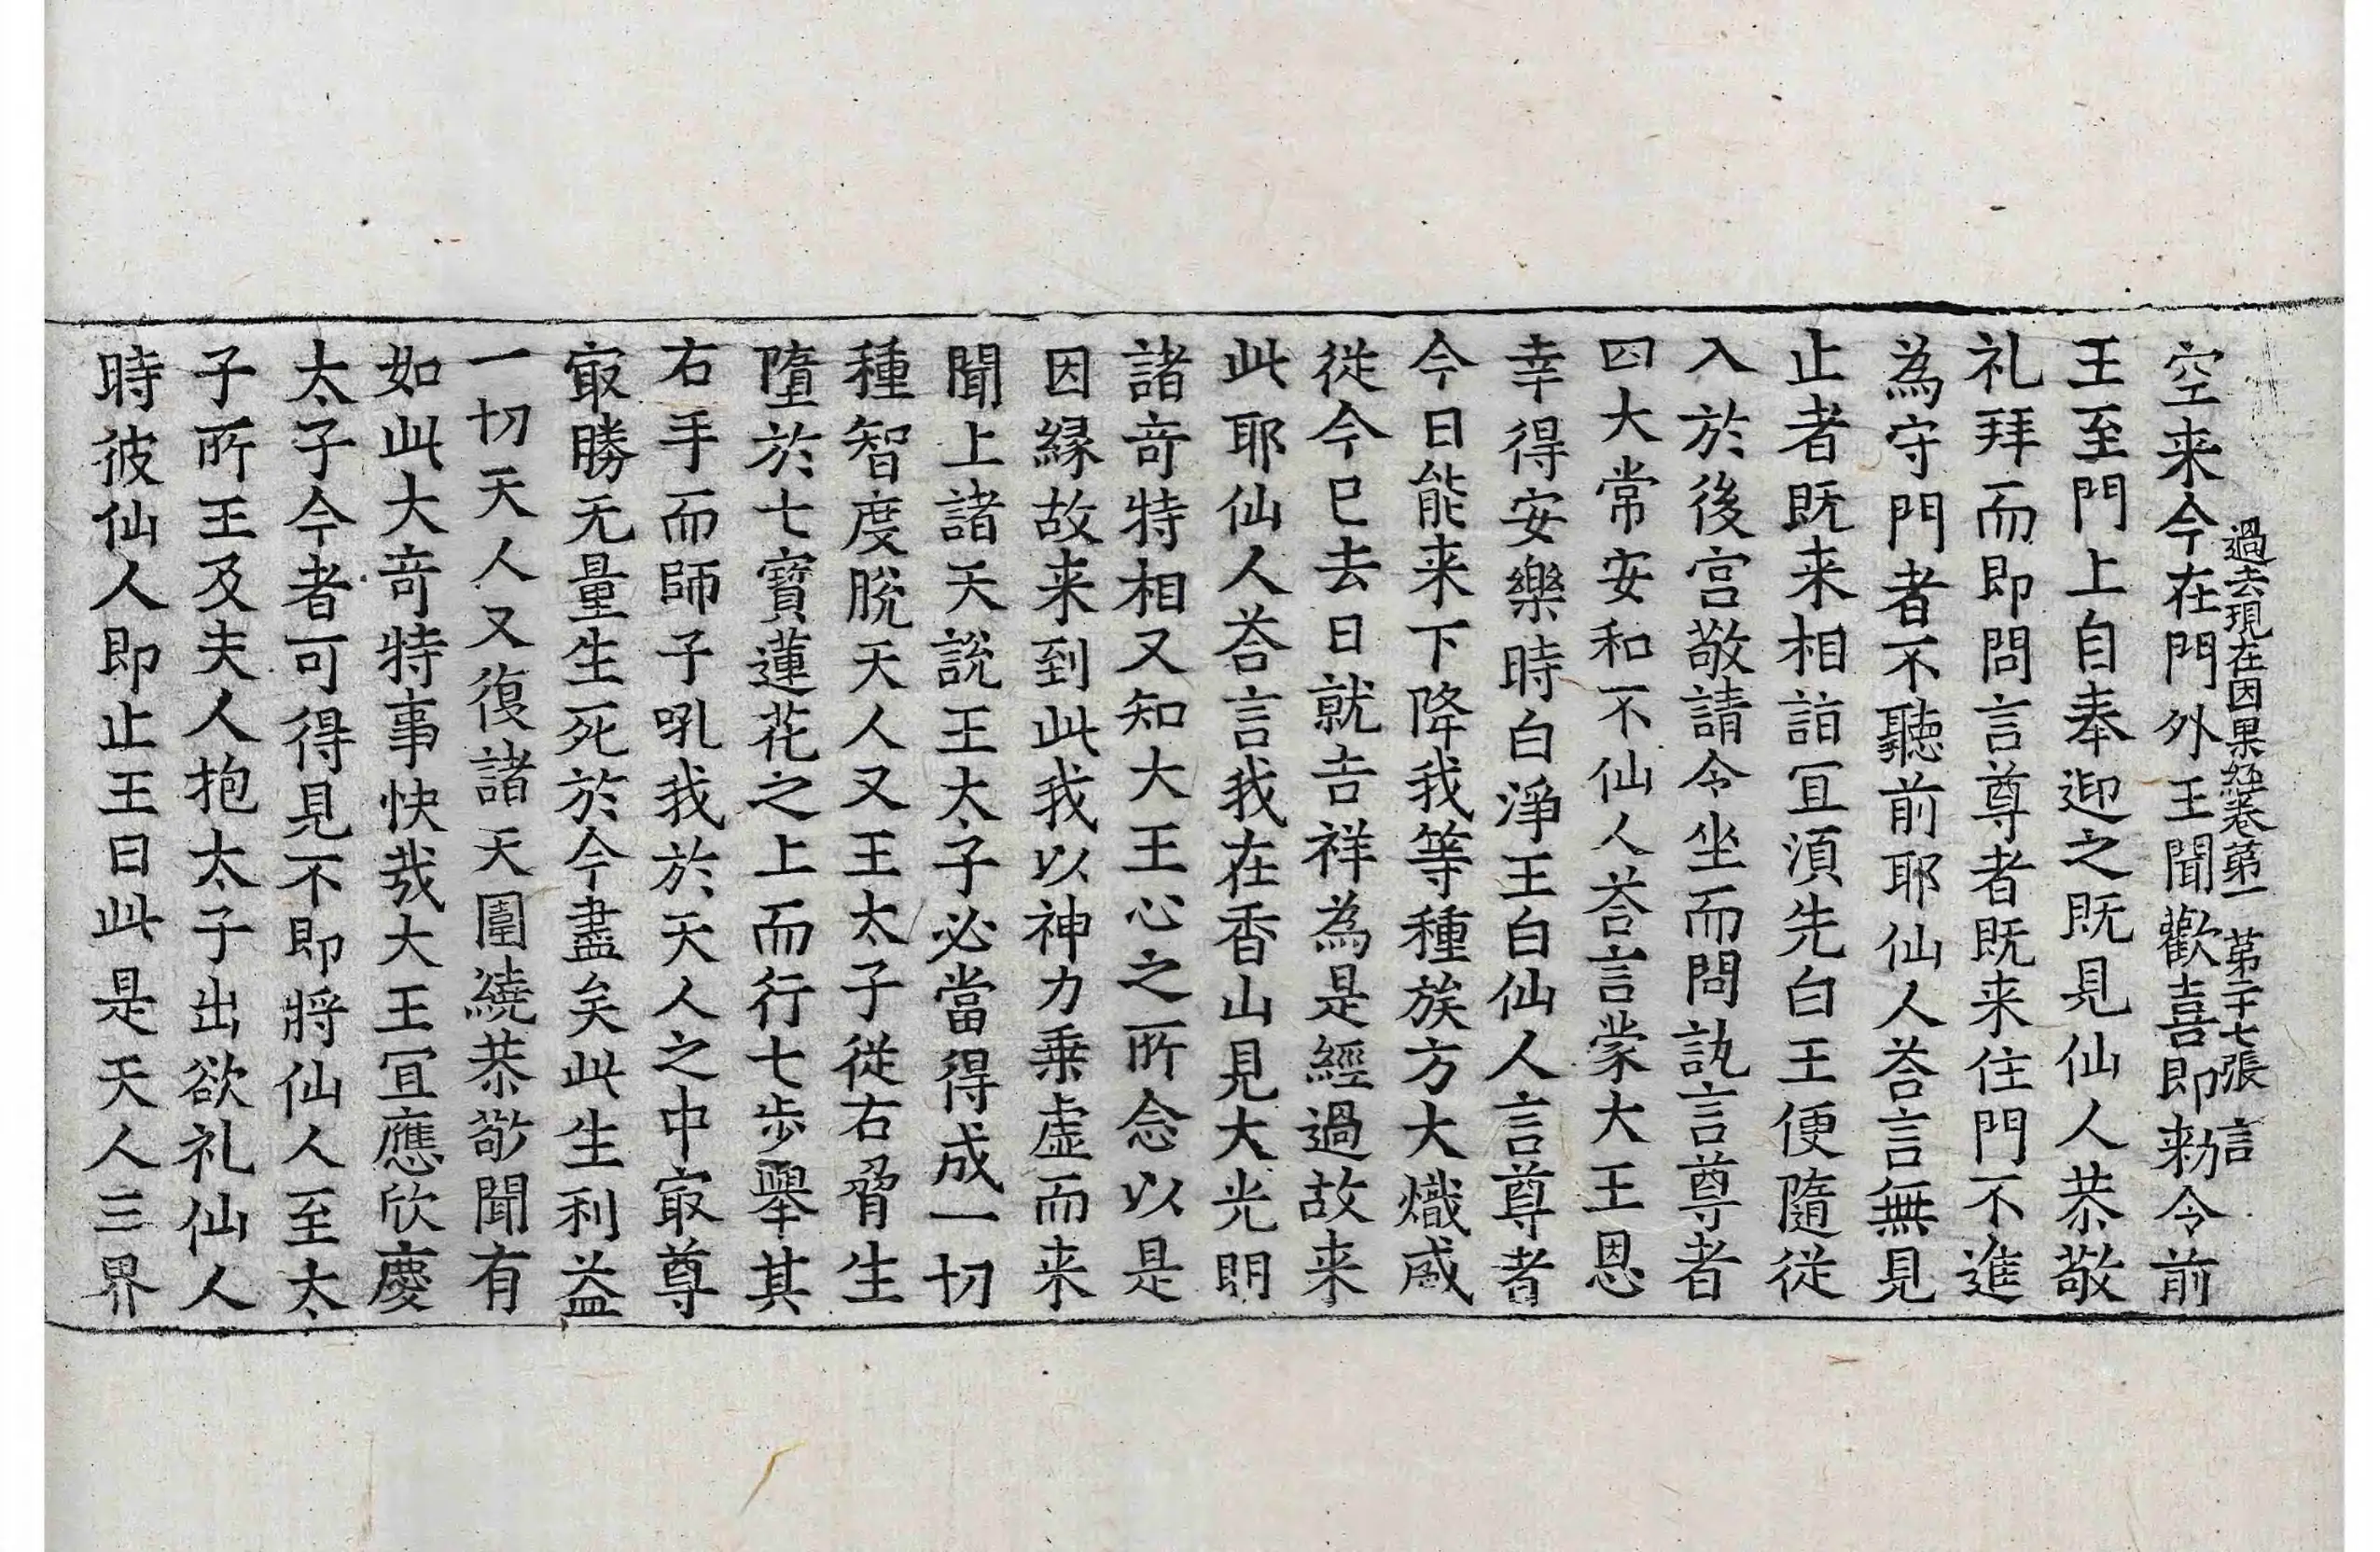 過去現在因果経卷第一 第二十七張 言
空来今在門外王聞歡喜即勑令前
王至門上自奉迎之既見仙人恭敬
礼拜而即問言尊者既来住門不進
為守門者不聽前耶仙人荅言無見
止者既来相詣冝湏先白王便隨従
入於後宫敬請令坐而問訊言尊者
四大常安和不仙人荅言蒙大王恩
幸得安樂時白淨王白仙人言尊者
今日能来下降我等種族方大熾盛
従今已去日就吉祥為是經過故来
此耶仙人荅言我在香山見大光明
諸竒特相又知大王心之所念以是
因緣故来到此我以神力乗虚而来
聞上諸天說王太子必當得成一切
種智度脫天人又王太子從右脅生
墮於七寳蓮花之上而行七步舉其
右手而師子吼我於天人之中㝡尊
㝡勝无量生死於今盡矣此生利益
一切天人又復諸天圍繞恭敬聞有
如此大竒特事快哉大王冝應欣慶
太子今者可得見不即將仙人至太
子所王及夫人抱太子出欲礼仙人
時彼仙人即止王曰此是天人三界